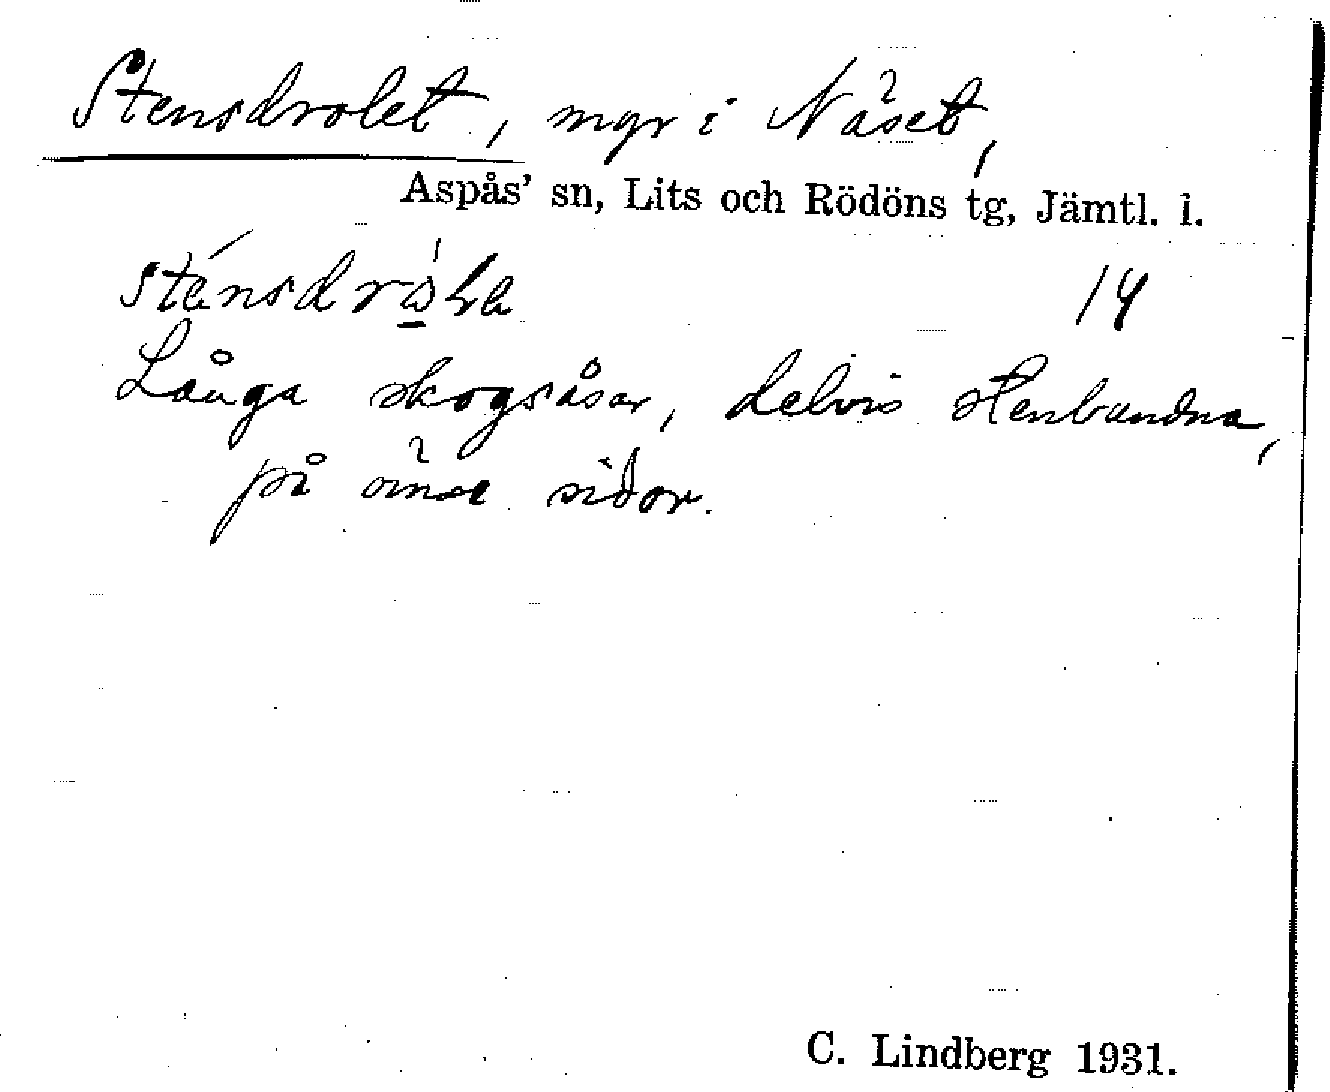 Stensdrolet, myr i Näset,
Aspås' sn, Lits och Rödöns tg, Jämtl. l.
14
Långa skogsåsar, delvis stenbundna,
på ömse sidor.
C. Lindberg 1931.